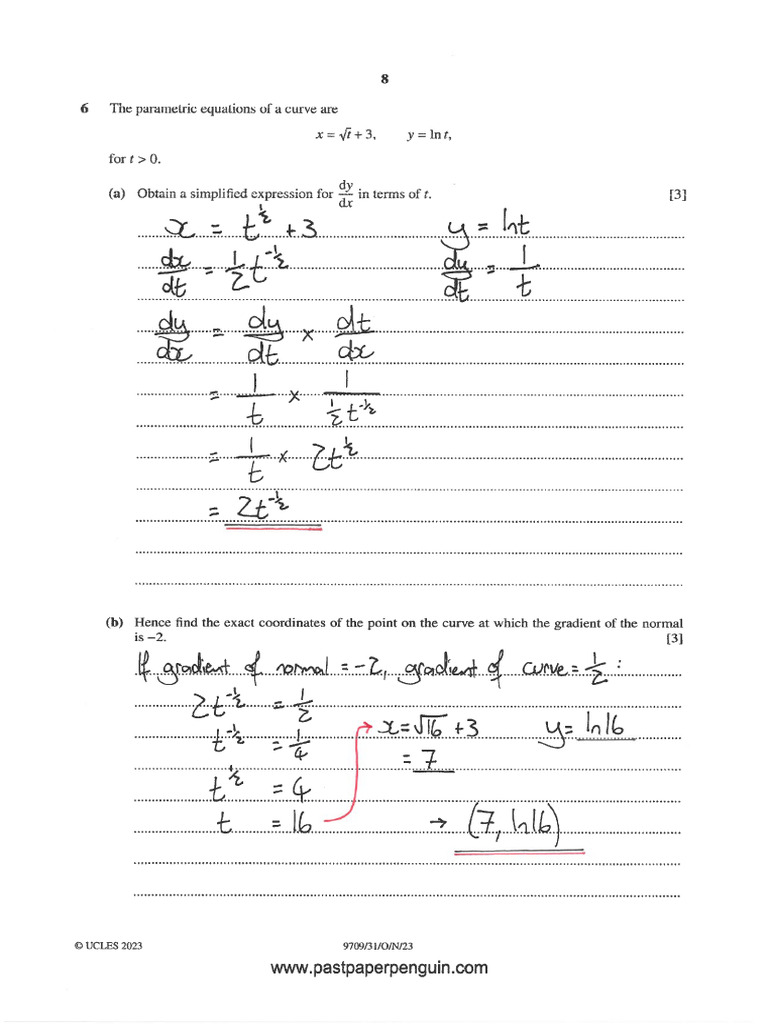 8
6 The parametric equations of a curve are
x = √t + 3, y = ln t,
for t > 0.
(a) Obtain a simplified expression for dy/dx in terms of t. [3]
x = t^½ + 3 y = ln t
dx/dt = ½ t^-½ dy/dt = 1/t
dy/dx = dy/dt × dt/dx
= 1/t × 1/(½ t^-½)
= 1/t × 2t^½
= 2t^-½
(b) Hence find the exact coordinates of the point on the curve at which the gradient of the normal
is –2. [3]
If gradient of normal = -2, gradient of curve = ½ :
2t^-½ = ½
t^-½ = ¼ x = √16 + 3 y = ln16
t^½ = 4 = 7
t = 16 → (7, ln16)
© UCLES 2023 9709/31/O/N/23
www.pastpaperpenguin.com